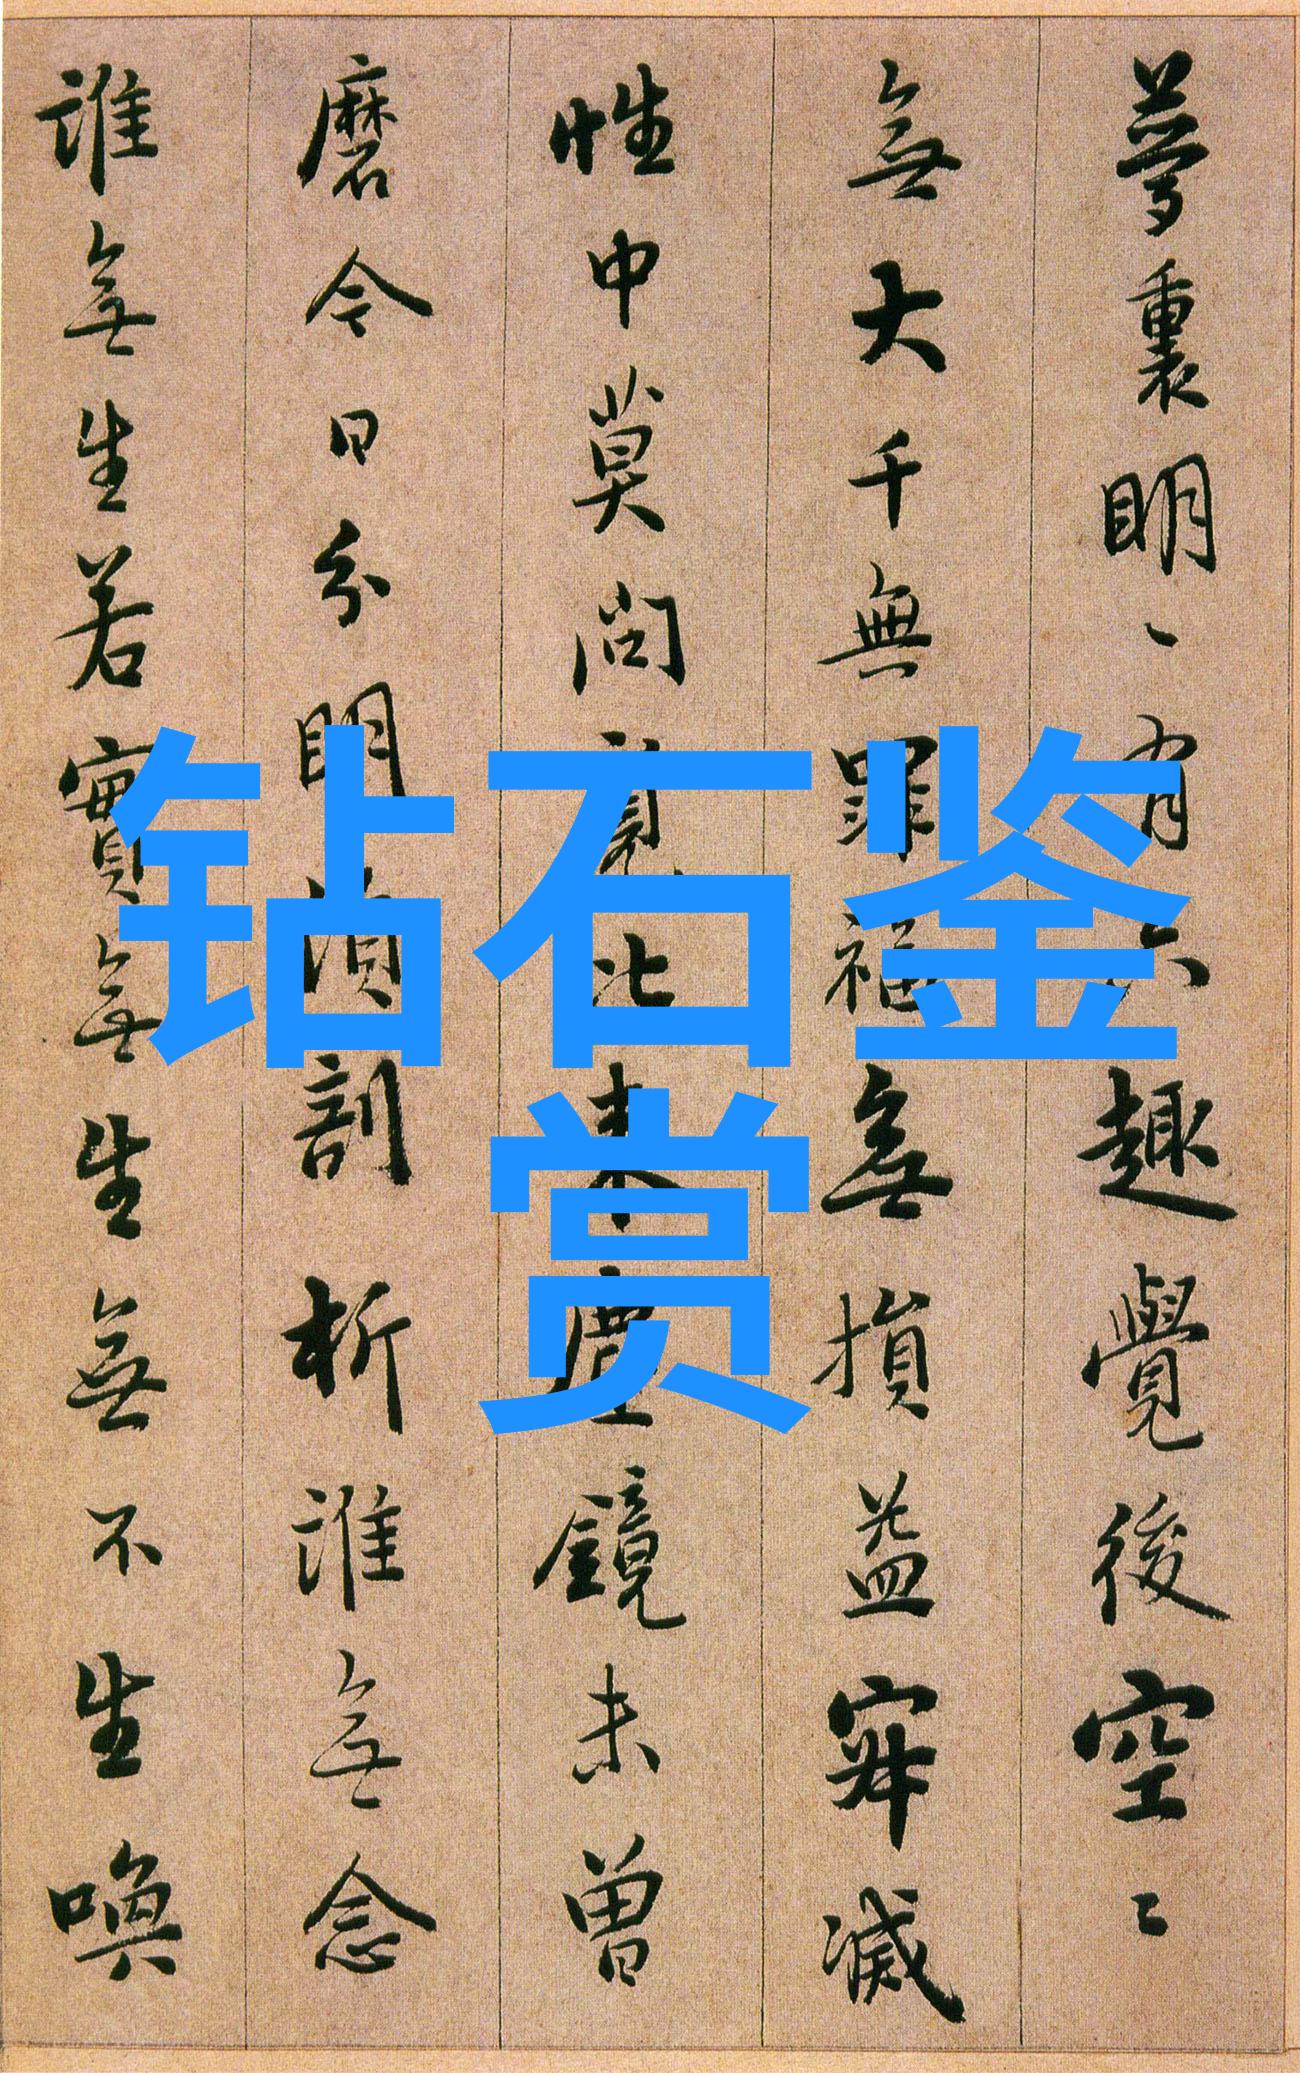 夢裏明〻有六趣覺後空〻
無大千無罪福無損益寂滅
性中莫問覓比来塵鏡未曾
磨今日分明須剖析誰無念
誰無生若實無生無不生喚
钻石鉴
赏